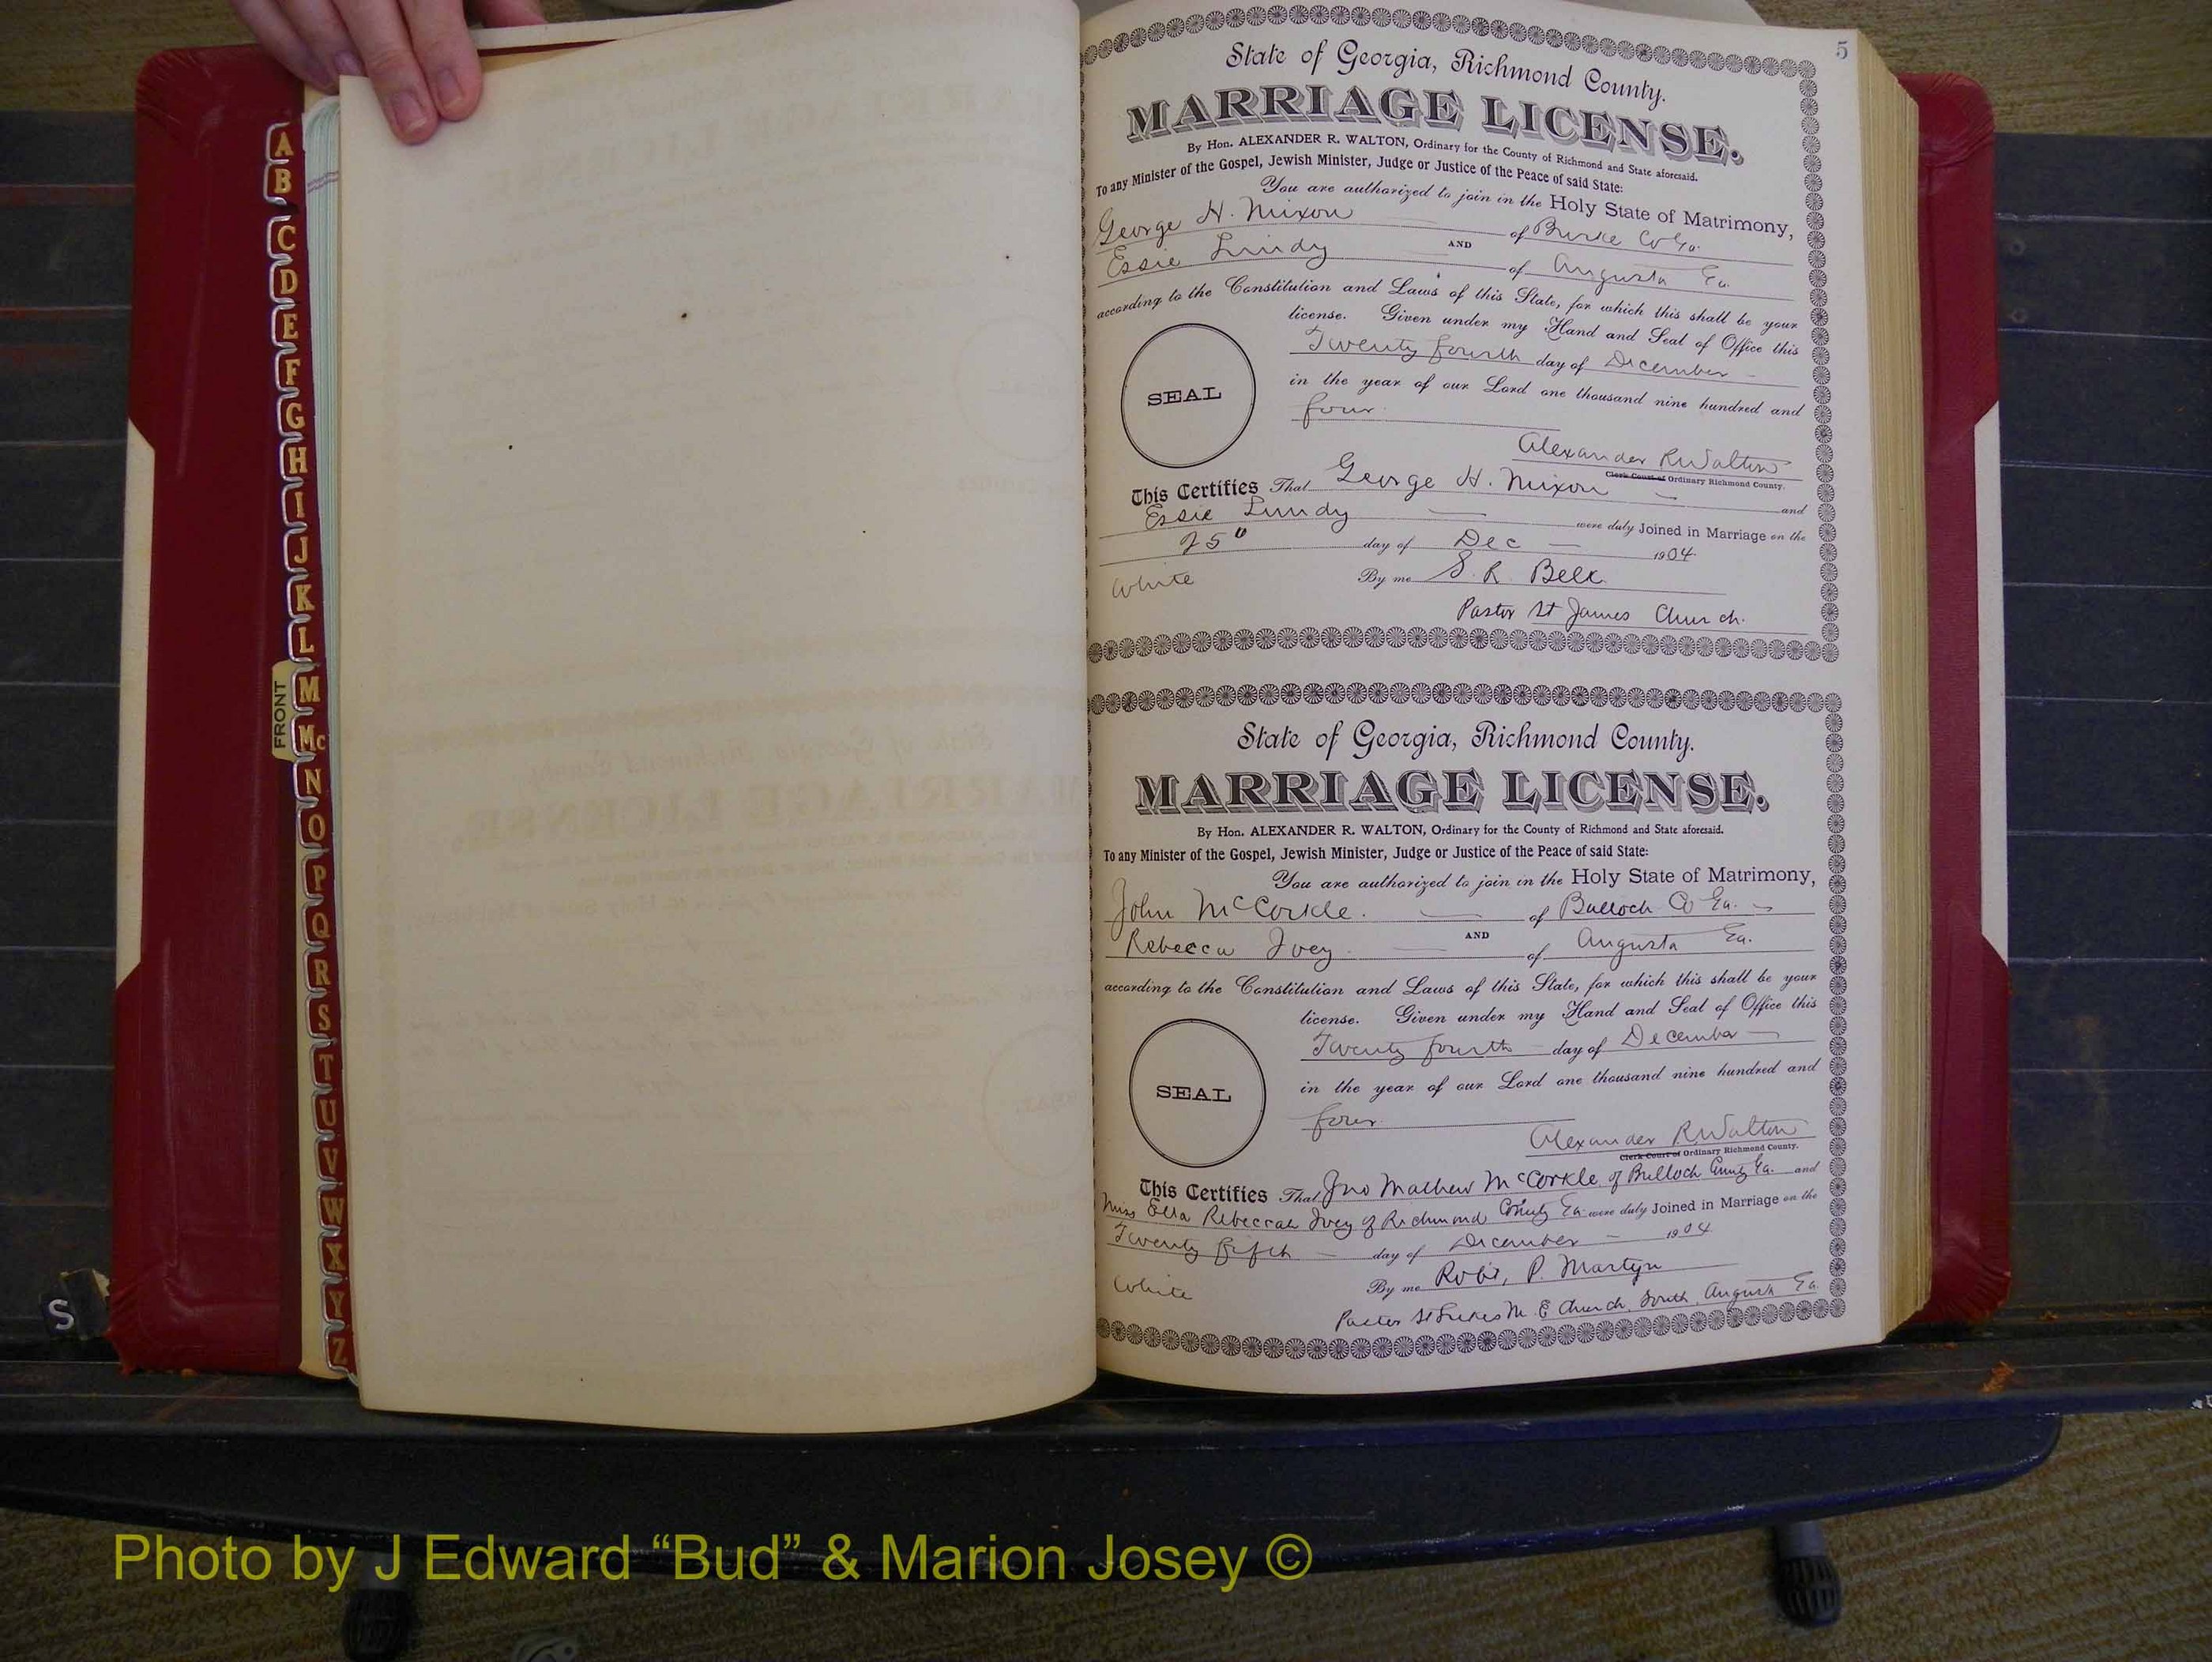 A
B
C
D
E
F
G
H
I
J
K
L
M
FRONT
Mc
N
O
P
Q
R
S
T
U
V
W
X
Y
Z
S
5
State of Georgia, Richmond County.
MARRIAGE LICENSE.
By Hon. ALEXANDER R. WALTON, Ordinary for the County of Richmond and State aforesaid.
To any Minister of the Gospel, Jewish Minister, Judge or Justice of the Peace of said State:
You are authorized to join in the Holy State of Matrimony,
George H. Nixon of Burke Co Ga.
AND
Essie Lundy of Augusta Ga.
according to the Constitution and Laws of this State, for which this shall be your
license. Given under my Hand and Seal of Office this
Twenty fourth day of December
SEAL
in the year of our Lord one thousand nine hundred and
four.
Alexander R Walton
Clerk Court of Ordinary Richmond County.
This Certifies That George H. Nixon and
Essie Lundy were duly Joined in Marriage on the
25" day of Dec 1904
White By me S. R. Belk
Pastor St James Church.
State of Georgia, Richmond County.
MARRIAGE LICENSE.
By Hon. ALEXANDER R. WALTON, Ordinary for the County of Richmond and State aforesaid.
To any Minister of the Gospel, Jewish Minister, Judge or Justice of the Peace of said State:
You are authorized to join in the Holy State of Matrimony,
John McCorkle. of Bulloch Co Ga.
AND
Rebecca Ivey of Augusta Ga.
according to the Constitution and Laws of this State, for which this shall be your
license. Given under my Hand and Seal of Office this
Twenty fourth day of December
SEAL
in the year of our Lord one thousand nine hundred and
four.
Alexander R Walton
Clerk Court of Ordinary Richmond County.
This Certifies That Jno Mathew McCorkle of Bulloch County Ga. and
Miss Ella Rebeccah Ivey of Richmond County Ga were duly Joined in Marriage on the
Twenty fifth day of December 1904
White By me Robt. P. Martyn
Pastor St Lukes M. E Church, South, Augusta Ga.
Photo by J Edward “Bud” & Marion Josey ©